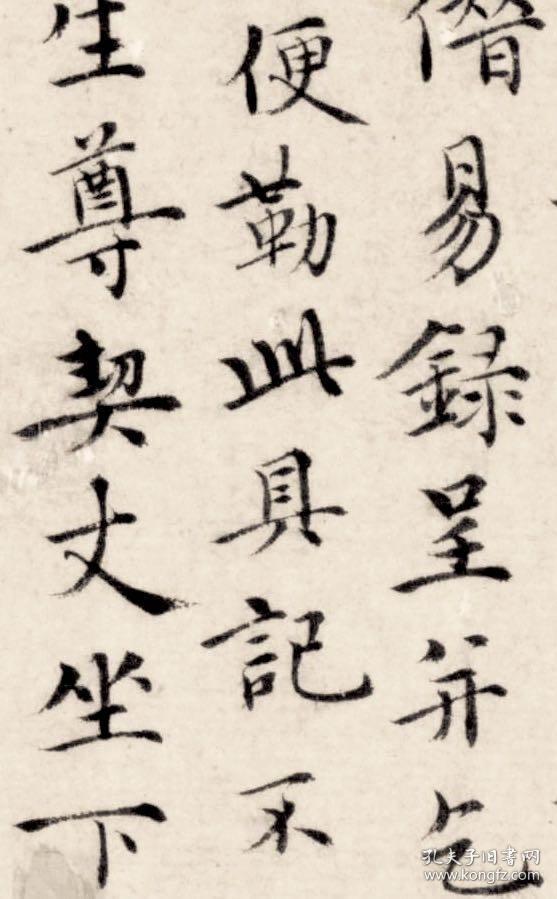 僭易錄呈并乞
便勒此具記不
生尊契丈坐下
孔夫子旧书网
www.kongfz.com